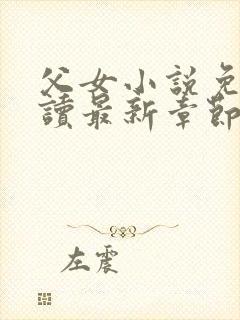 父女小說免
讀最新章節
左震